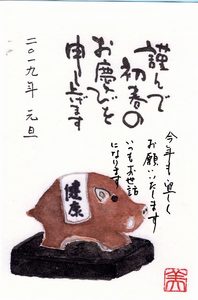 謹んで
初春の
お慶びを
申し上げます
二〇一九年 元旦
今年も宜しく
お願いいたします
いつもお世話
になります
健康
美